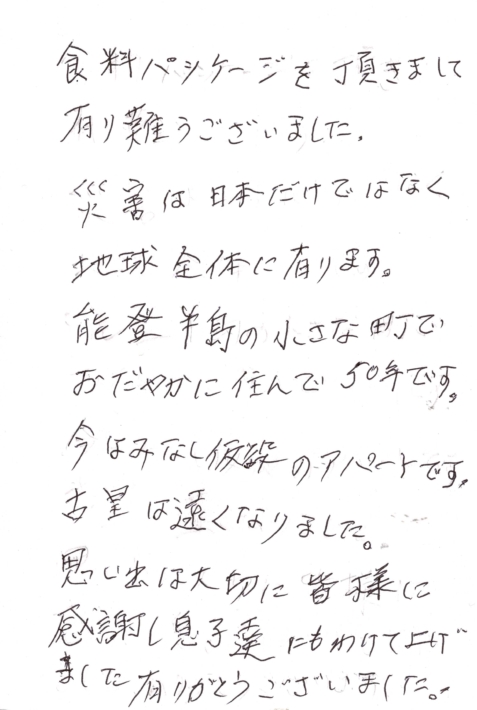 食料パッケージを頂きまして
有り難うございました。
災害は日本だけではなく
地球全体に有ります。
能登半島の小さな町で
おだやかに住んで50年です。
今はみなし仮設のアパートです。
古里は遠くなりました。
思い出は大切に皆様に
感謝し息子達にもわけて上げ
ました有りがとうございました。